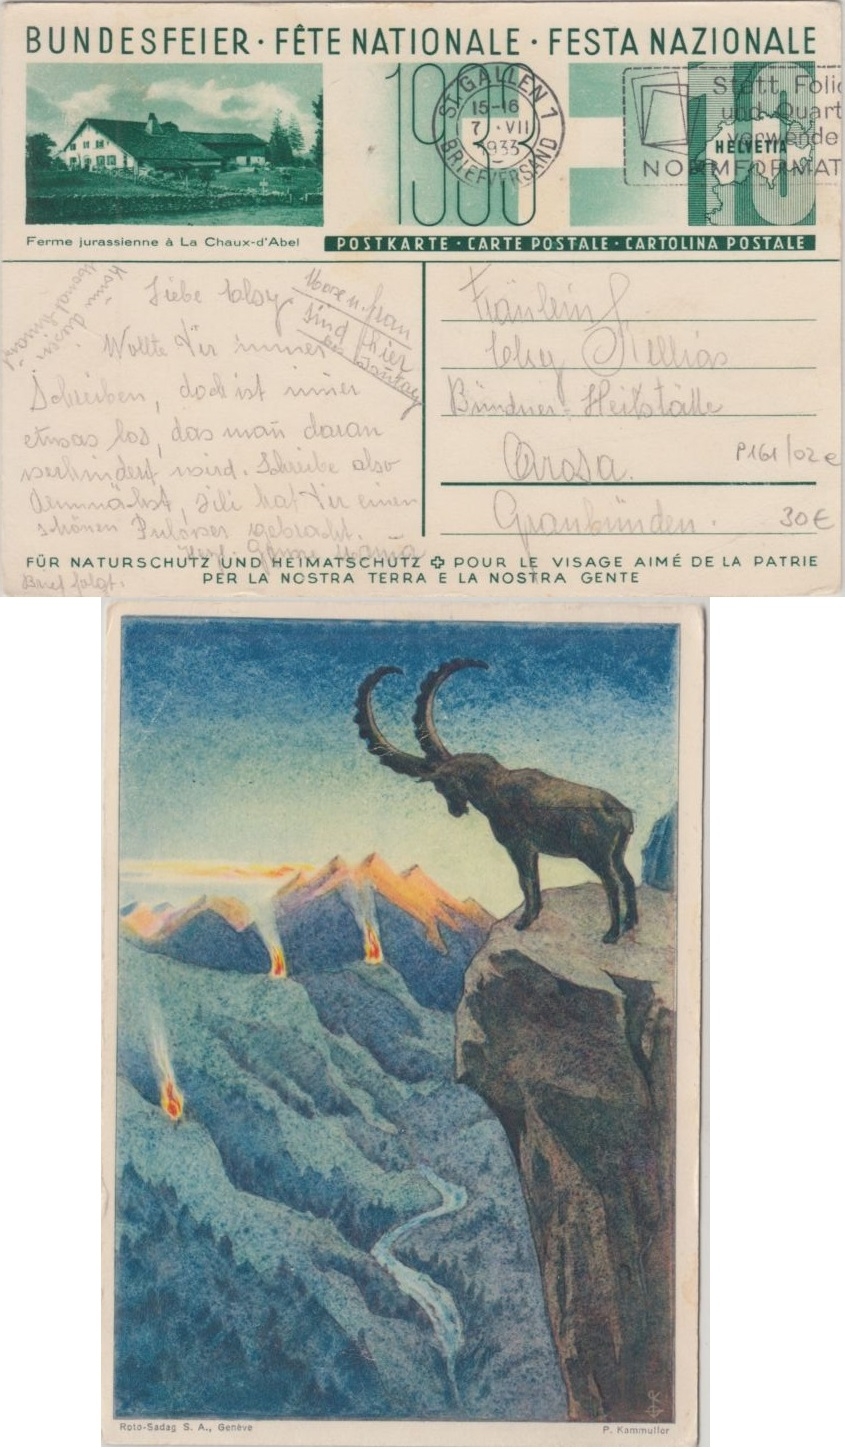 BUNDESFEIER · FÊTE NATIONALE · FESTA NAZIONALE
1933
ST. GALLEN 1
15-16
7. VII
1933
BRIEFVERSAND
Statt Folio
und Quart
verwende
NORMFORMAT
HELVETIA
10
Ferme jurassienne à La Chaux-d'Abel
POSTKARTE · CARTE POSTALE · CARTOLINA POSTALE
Liebe
sind hier
Wollte Dir immer
Schreiben, doch ist immer
etwas los, das man daran
verhindert wird. Schreibe also
demnächst, Lili hat Dir einen
schönen gebracht.
Brief folgt.
Fräulein
Bündner Heilstätte
Arosa.
Graubünden.
P161/02 e
30€
FÜR NATURSCHUTZ UND HEIMATSCHUTZ POUR LE VISAGE AIMÉ DE LA PATRIE
PER LA NOSTRA TERRA E LA NOSTRA GENTE
Roto-Sadag S. A., Genève
P. Kammüller